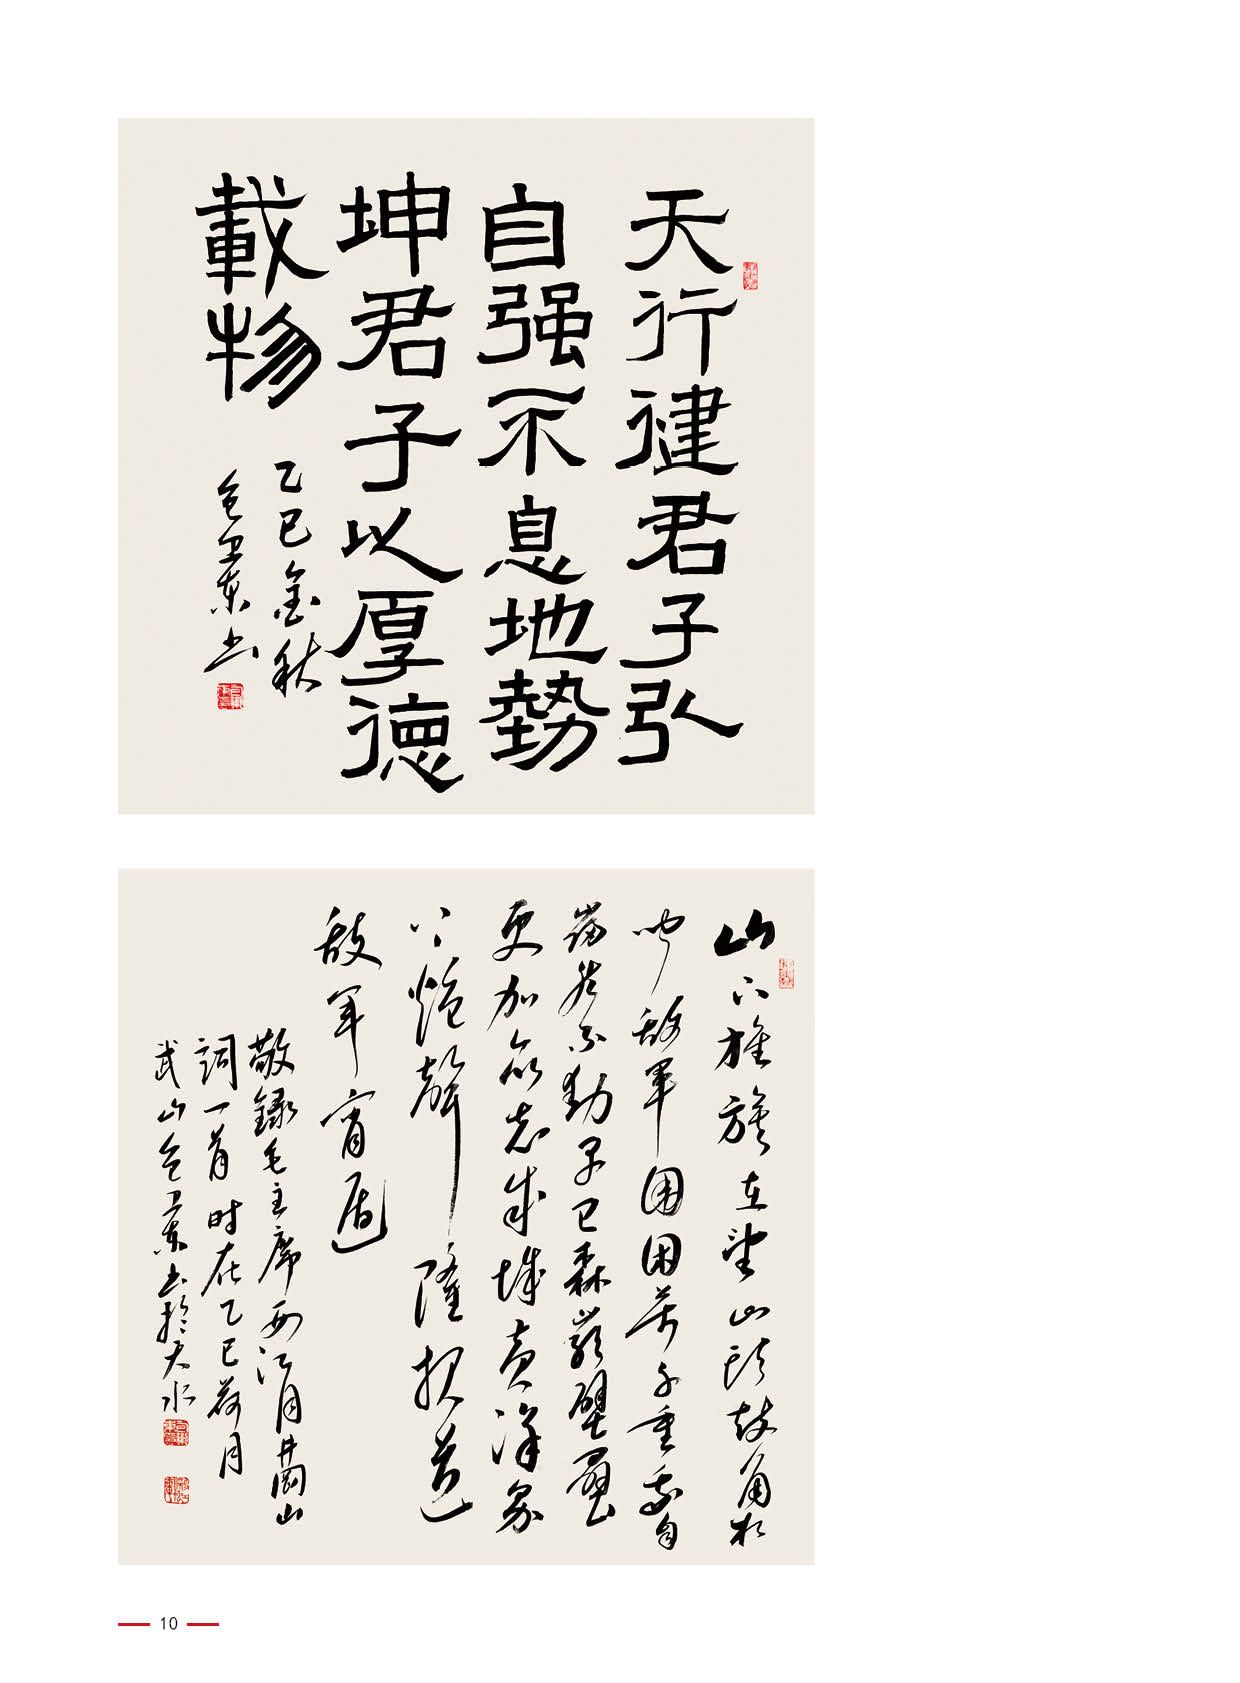 天行徤君子弘
自强不息地勢
坤君子以厚德
載物
乙巳金秋
包卫东书
山下旌旗在望山头鼓角相
闻敌軍围困萬千重我自
巋然不動早已森嚴壁壘
更加众志成城黄洋界
上炮聲隆报道
敌军宵遁
敬録毛主席西江月井岡山
詞一首时在乙巳荷月
武山包卫东书於天水
10